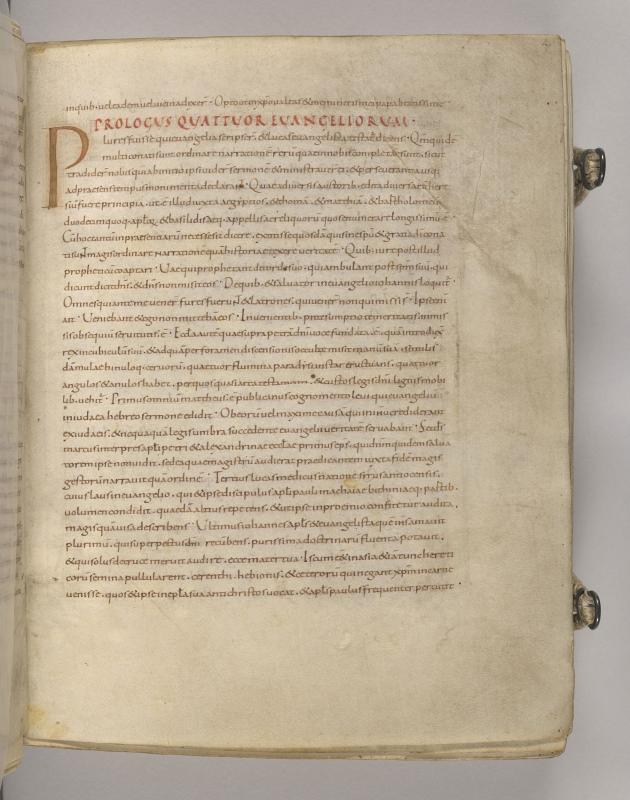 inquib· vel eadem vel vicina dixer̄ · Opto ut in xp̄o valeas & memineris mei papa beatissime
PROLOGUS QUATTUOR EUANGELIORUM·
Plures fuisse qui euangelia scripser̄ & lucas euangelista testat̄ dicens · Qm̄ quidē
multi conati sunt ordinare narrationē rerū quae in nobis completae sunt sicut
tradider̄ nobis qui ab initio ipsi vider̄ sermonē & ministraver̄t ·
ad praesens tempus monimenta declarant · Quae a diversis auctorib· edita diversar̄ heres
iū fuere principia, ut ē illud iuxta aegyptios, & thoma, & matthia, & bartholomeū,
duodecim quoq· aplor̄, & basilidis atq· appellis ac reliquorū quos enumerare longissimū ē
Cū hoc tantū in praesentiarū necesse sit dicere, extitisse quosdā qui sine sp̄u & gratia dī cona
ti sunt magis ordinare narrationē quā historiae texere veritatē · Quib· iure potest illud
propheticū coaptari · Vae qui prophetant de corde suo · qui ambulant post sp̄m suū, qui
dicunt dicit dn̄s, & dn̄s non misit eos · De quib· & salvator in euangelio iohannis loquit̄
Omnes qui ante me vener̄ fures fuer̄ & latrones, qui vener̄ non qui missi s̄ · Ipse enī
ait · Veniebant & ego non mittebā eos · In venientib· praesumptio temeritatis, in mis
sis obsequiū servitutis ē · Ecclā aūt quae supra petrā dn̄i voce fundata ē · quā introduxit
rex in cubiculū suū, & ad quā per foramen discensionis occultae misit manū suā, similis
dāmulae hinuloq· cervorū, quattuor flumina paradysi instar eructuans, quattuor
angulos & anulos habet, per quos quasi arca testamenti & custos legis dn̄i lignis mobi
lib· vehit̄ · Primus omniū mattheus ē publicanus cognomento levi qui euangeliū
in iudaea hebreo sermone edidit · Ob eorū vel maxime causā qui in iħm crediderant
ex iudaeis, & nequaquā legis umbra succedente euangelii veritatē servabant · Scd̄s
marcus interpres apl̄i petri & alexandrinae ecclae primus ep̄s, qui dn̄m quidem salva
torem ipse non vidit, sed ea quae magistrū audierat praedicantem iuxta fidē magis
gestorū narravit quā ordinē · Tertius lucas medicus natione syrus antiocensis,
cuius laus in euangelio, qui & ipse discipulus apl̄i pauli in achaiae bithiniaeq· partib·
volumen condidit, quaedā altius repetens, & ut ipse in prooemio confitet̄ ut audita
magis quā visa describens · Ultimus iohannes apl̄s & euangelista quē iħs amavit
plurimū, qui super pectus dn̄i recūbens, purissima doctrinarū fluenta potavit,
& qui solus de cruce meruit audire, ecce mater tua · Is cū eēt in asia & iā tunc hereti
corū semina pullularent, cerenthi, hebionis, & ceterorū qui negant xp̄m in carne
venisse, quos & ipse in epl̄a sua antichristos vocat, & apl̄s paulus frequenter percutit